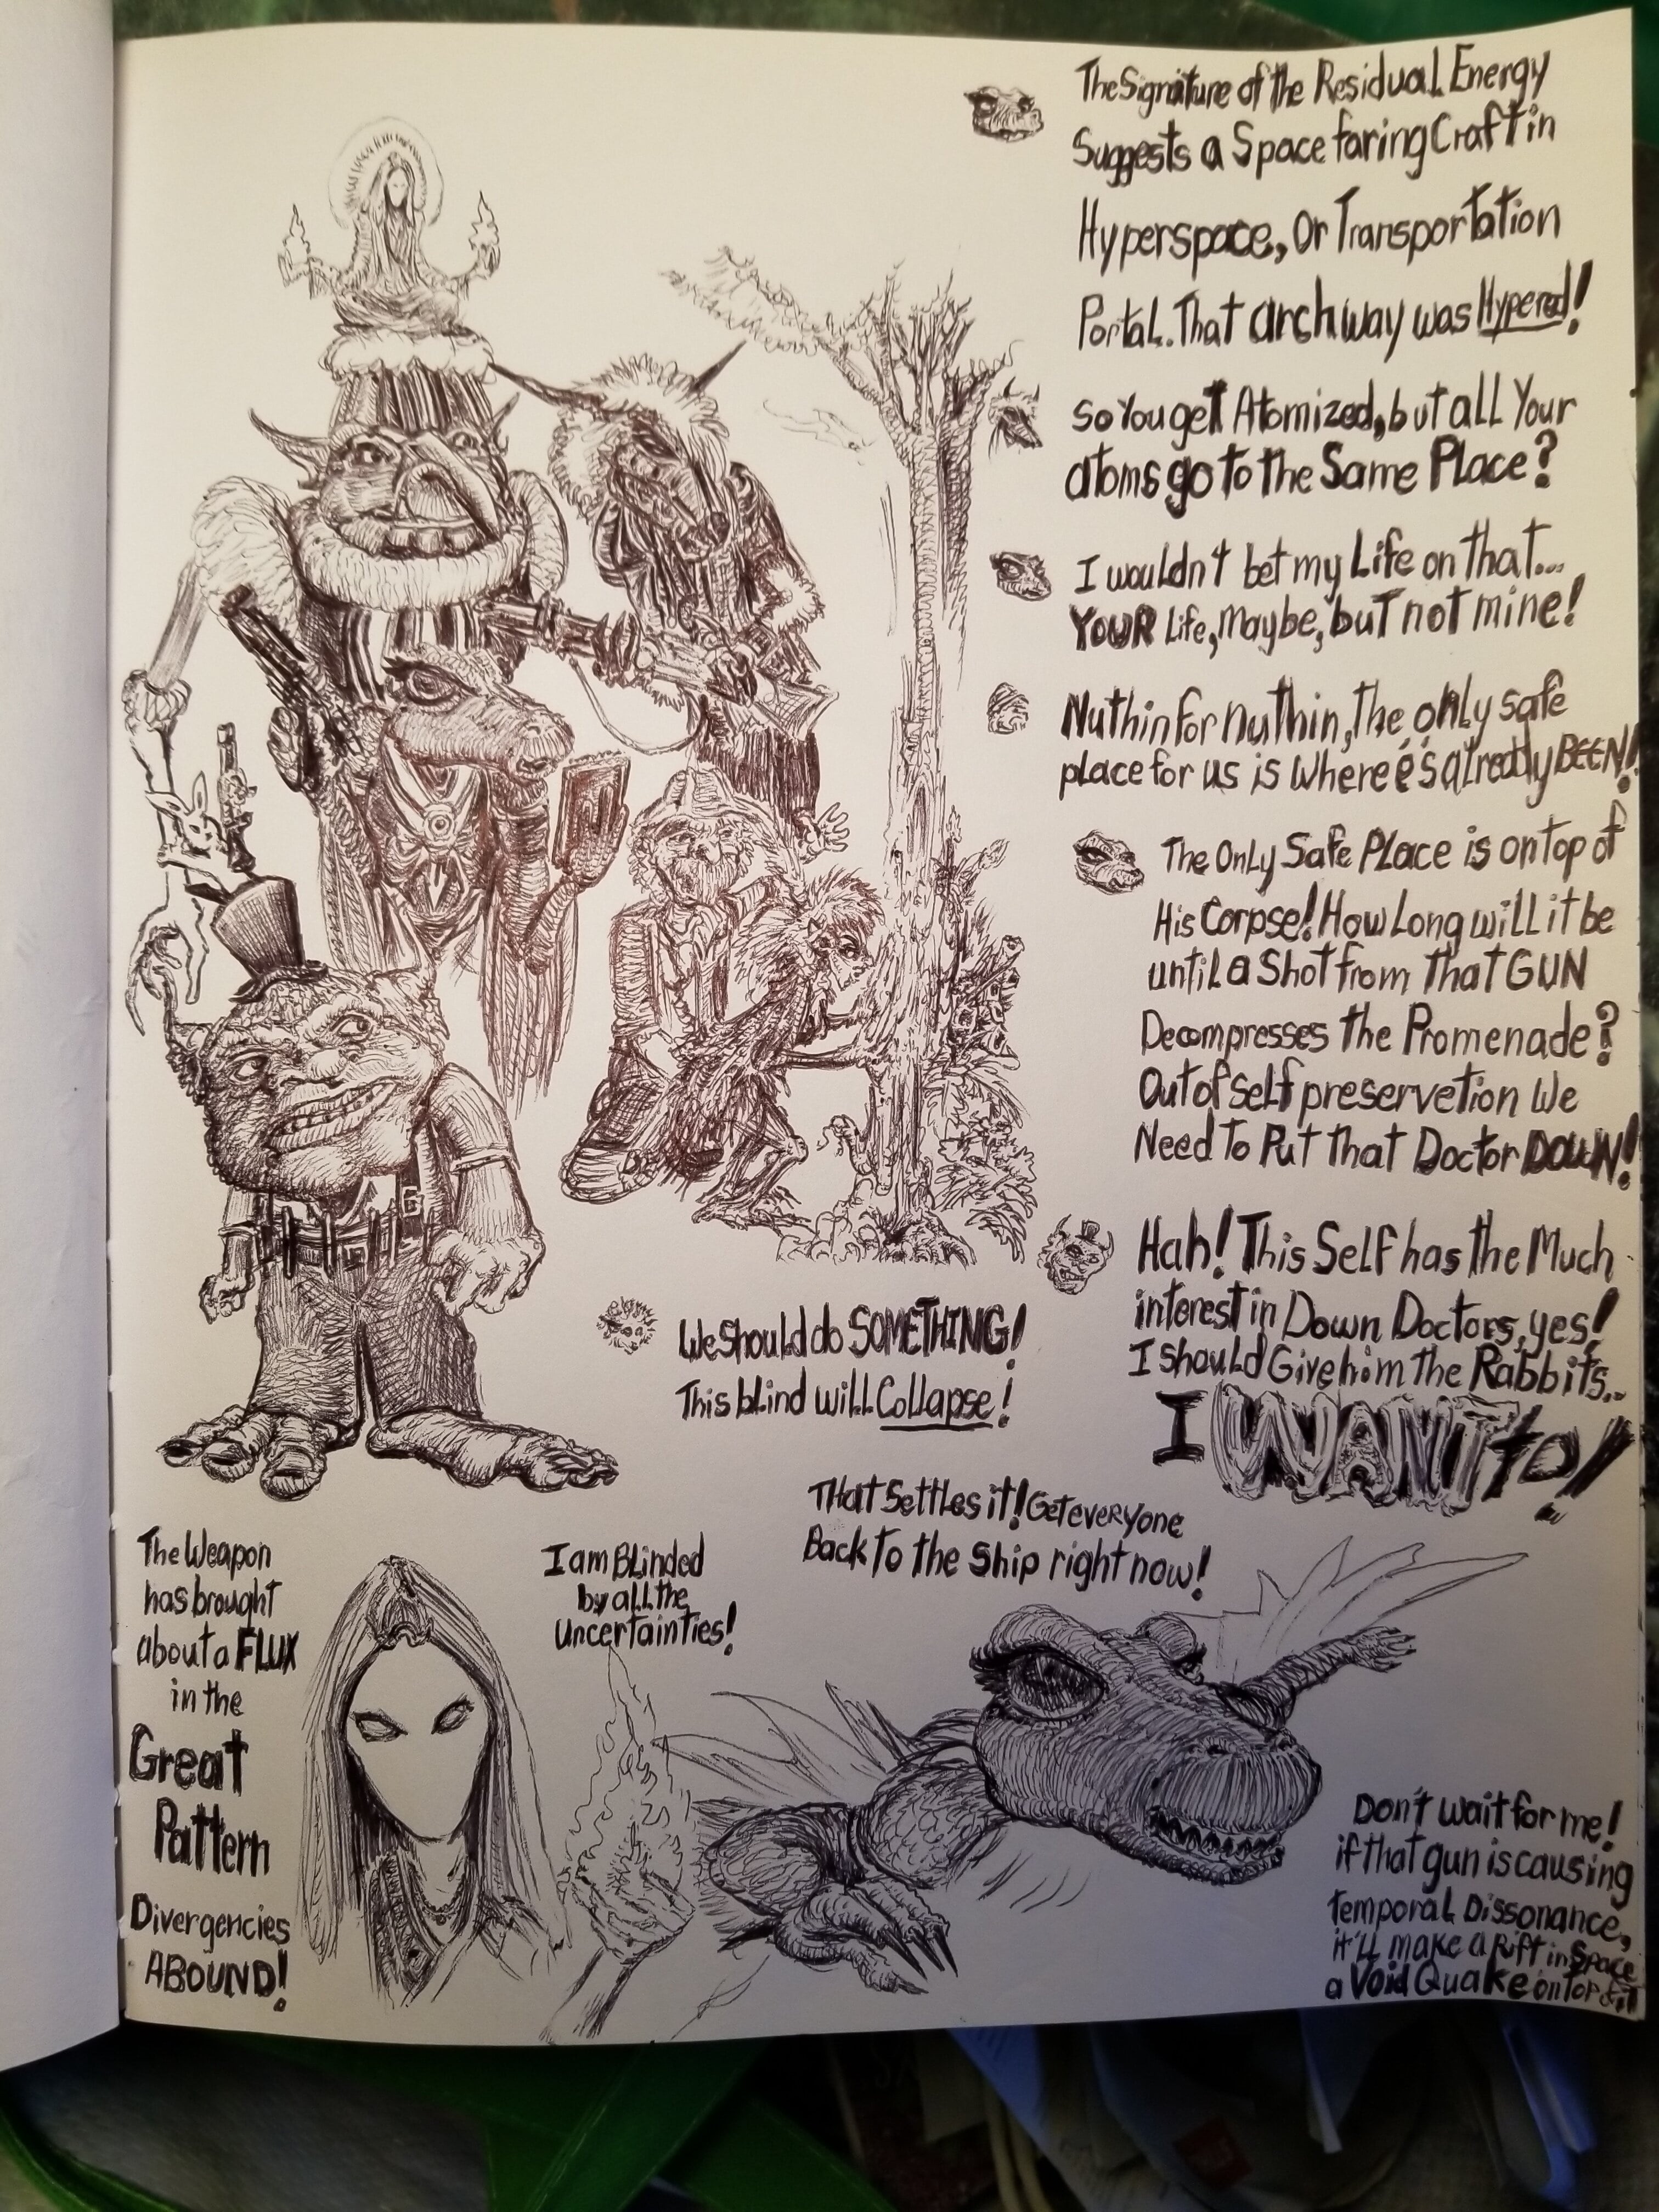 The Signature of the Residual Energy
Suggests a Space faring Craft in
Hyperspace, Or Transportation
Portal. That archway was Hypered!
So You get Atomized, but all Your
atoms go to the Same Place?
I wouldn't bet my Life on that...
YOUR Life, Maybe, but not mine!
Nuthin for nuthin, The only safe
place for us is Where e's already BEEN!
The Only Safe Place is on top of
His Corpse! How Long will it be
until a Shot from That GUN
Decompresses the Promenade?
Out of self preservetion We
Need To Put That Doctor DOWN!
Hah! This Self has the Much
interest in Down Doctors, yes!
I should Give him the Rabbits..
I WANT to!
We Should do SOMETHING!
This blind will Collapse!
THat Settles it! Get everyone
Back To the Ship right now!
The Weapon
has brought
about a FLUX
in the
Great
Pattern
Divergencies
ABOUND!
I am Blinded
by all the
Uncertainties!
Don't wait for me!
if that gun is causing
Temporal Dissonance,
it'll make a Rift in Space
a Void Quake on Top of it